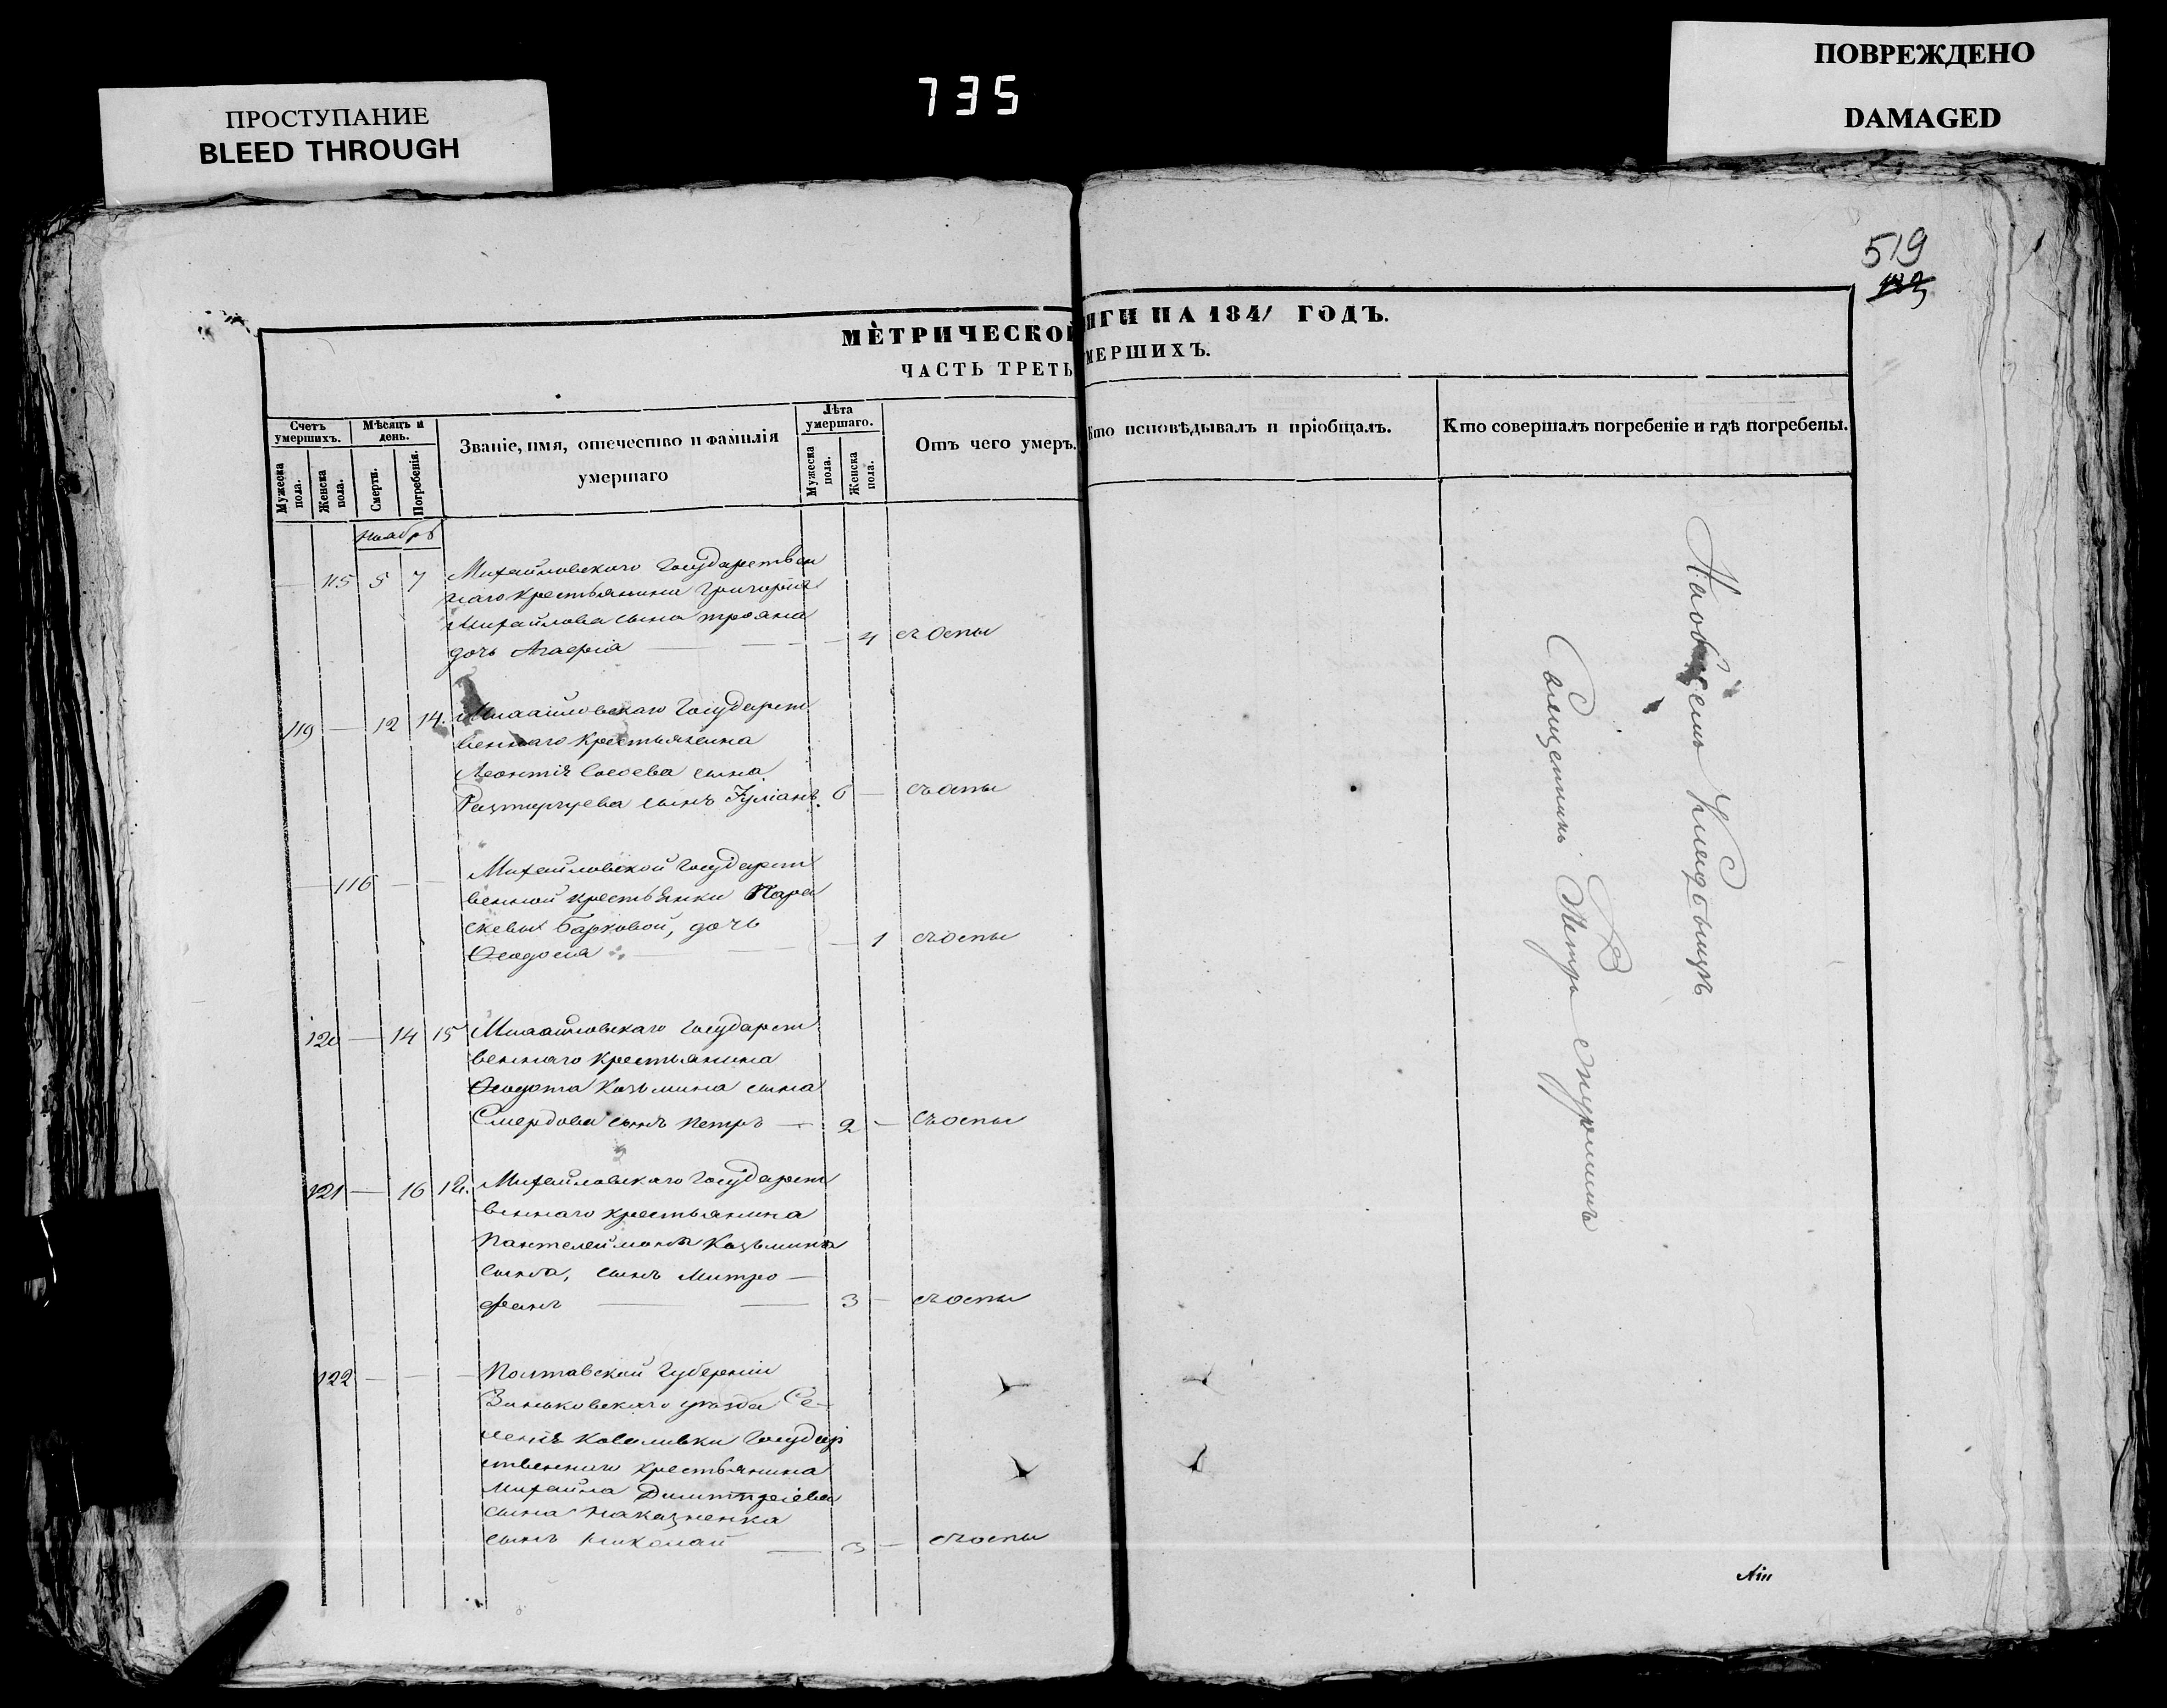 ПРОСТУПАНИЕ
BLEED THROUGH
735
ПОВРЕЖДЕНО
DAMAGED
519
МЕТРИЧЕСКОЙ
ЧАСТЬ ТРЕТЬ
Счетъ умершихъ.
Мужеска пола.
Женска пола.
Мѣсяцъ и день.
Смерти.
Погребенія.
Званіе, имя, отечество и фамилія
умершаго
Лѣта умершаго.
Мужеска пола.
Женска пола.
Отъ чего умеръ.
НГИ НА 1841 ГОДЪ.
МЕРШИХЪ.
Кто исповѣдывалъ и пріобщалъ.
Кто совершалъ погребеніе и гдѣ погребены.
Ноябръ
— 115 5 7 Михайловскаго Государствен
наго крестьянина Григорія
Михайлова сына Трояна
дочь Агафія — — 4 съ оспы
119 — 12 14. Михайловскаго Государст
веннаго крестьянина
Леонтія сына
Расторгуева сынъ Іуліанъ. 6 — съ оспы
— 116 — — Михайловской Государст
венной крестьянки Пара
скевы Барковой, дочь
Ѳеодосія — — 1 съ оспы
120 — 14 15 Михайловскаго Государст
веннаго крестьянина
Ѳеодота Козьмина сына
Смердова сынъ Петръ — 2 — съ оспы
121 — 16 Михайловскаго Государст
веннаго крестьянина
Пантелеймона Козьмина
сына, сынъ Митро
фанъ — 3 — съ оспы
122 — — — Полтавской Губерніи
Зиньковскаго уѣзда Се-
ленія Ковалевки Государ
ственнаго крестьянина
Михайла Димитріева
сына
сынъ Николай — 3 — съ оспы
На общемъ кладбищѣ
Священникъ Петръ